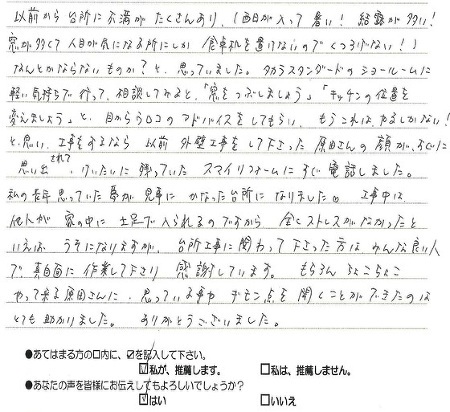 以前から台所に不満がたくさんあり、(西日が入って暑い! 結露が多い!
窓が多くて人目が気になる所にしか食卓机を置けないのでくつろげない!)
なんとかならないものか?と、思っていました。タカラスタンダードのショールームに
軽い気持ちで行って、相談してみると、「窓をつぶしましょう」「キッチンの位置を
変えましょう」と、目からウロコのアドバイスをしてもらい、もうこれは、やるしかない!
と思い、工事をするなら以前外壁工事をして下さった原田さんの顔が、すぐに
思い出されて、けいたいに残っていたスマイリフォームにすぐ電話しました。
私の長年思っていた夢が見事にかなった台所になりました。 工事中は
他人が家の中に土足で入られるのですから全くストレスがなかったと
いえば、うそになりますが、台所工事に関わって下さった方はみんな良い人
で、真面目に作業して下さり感謝しています。 もちろんちょこちょこ
やって来る原田さんに、思っている事やギモン点を聞くことができたのは
とても助かりました。 ありがとうございました。
●あてはまる方の口内に、☑を記入して下さい。
☑私が、推薦します。 □私は、推薦しません。
●あなたの声を皆様にお伝えしてもよろしいでしょうか?
☑はい □いいえ